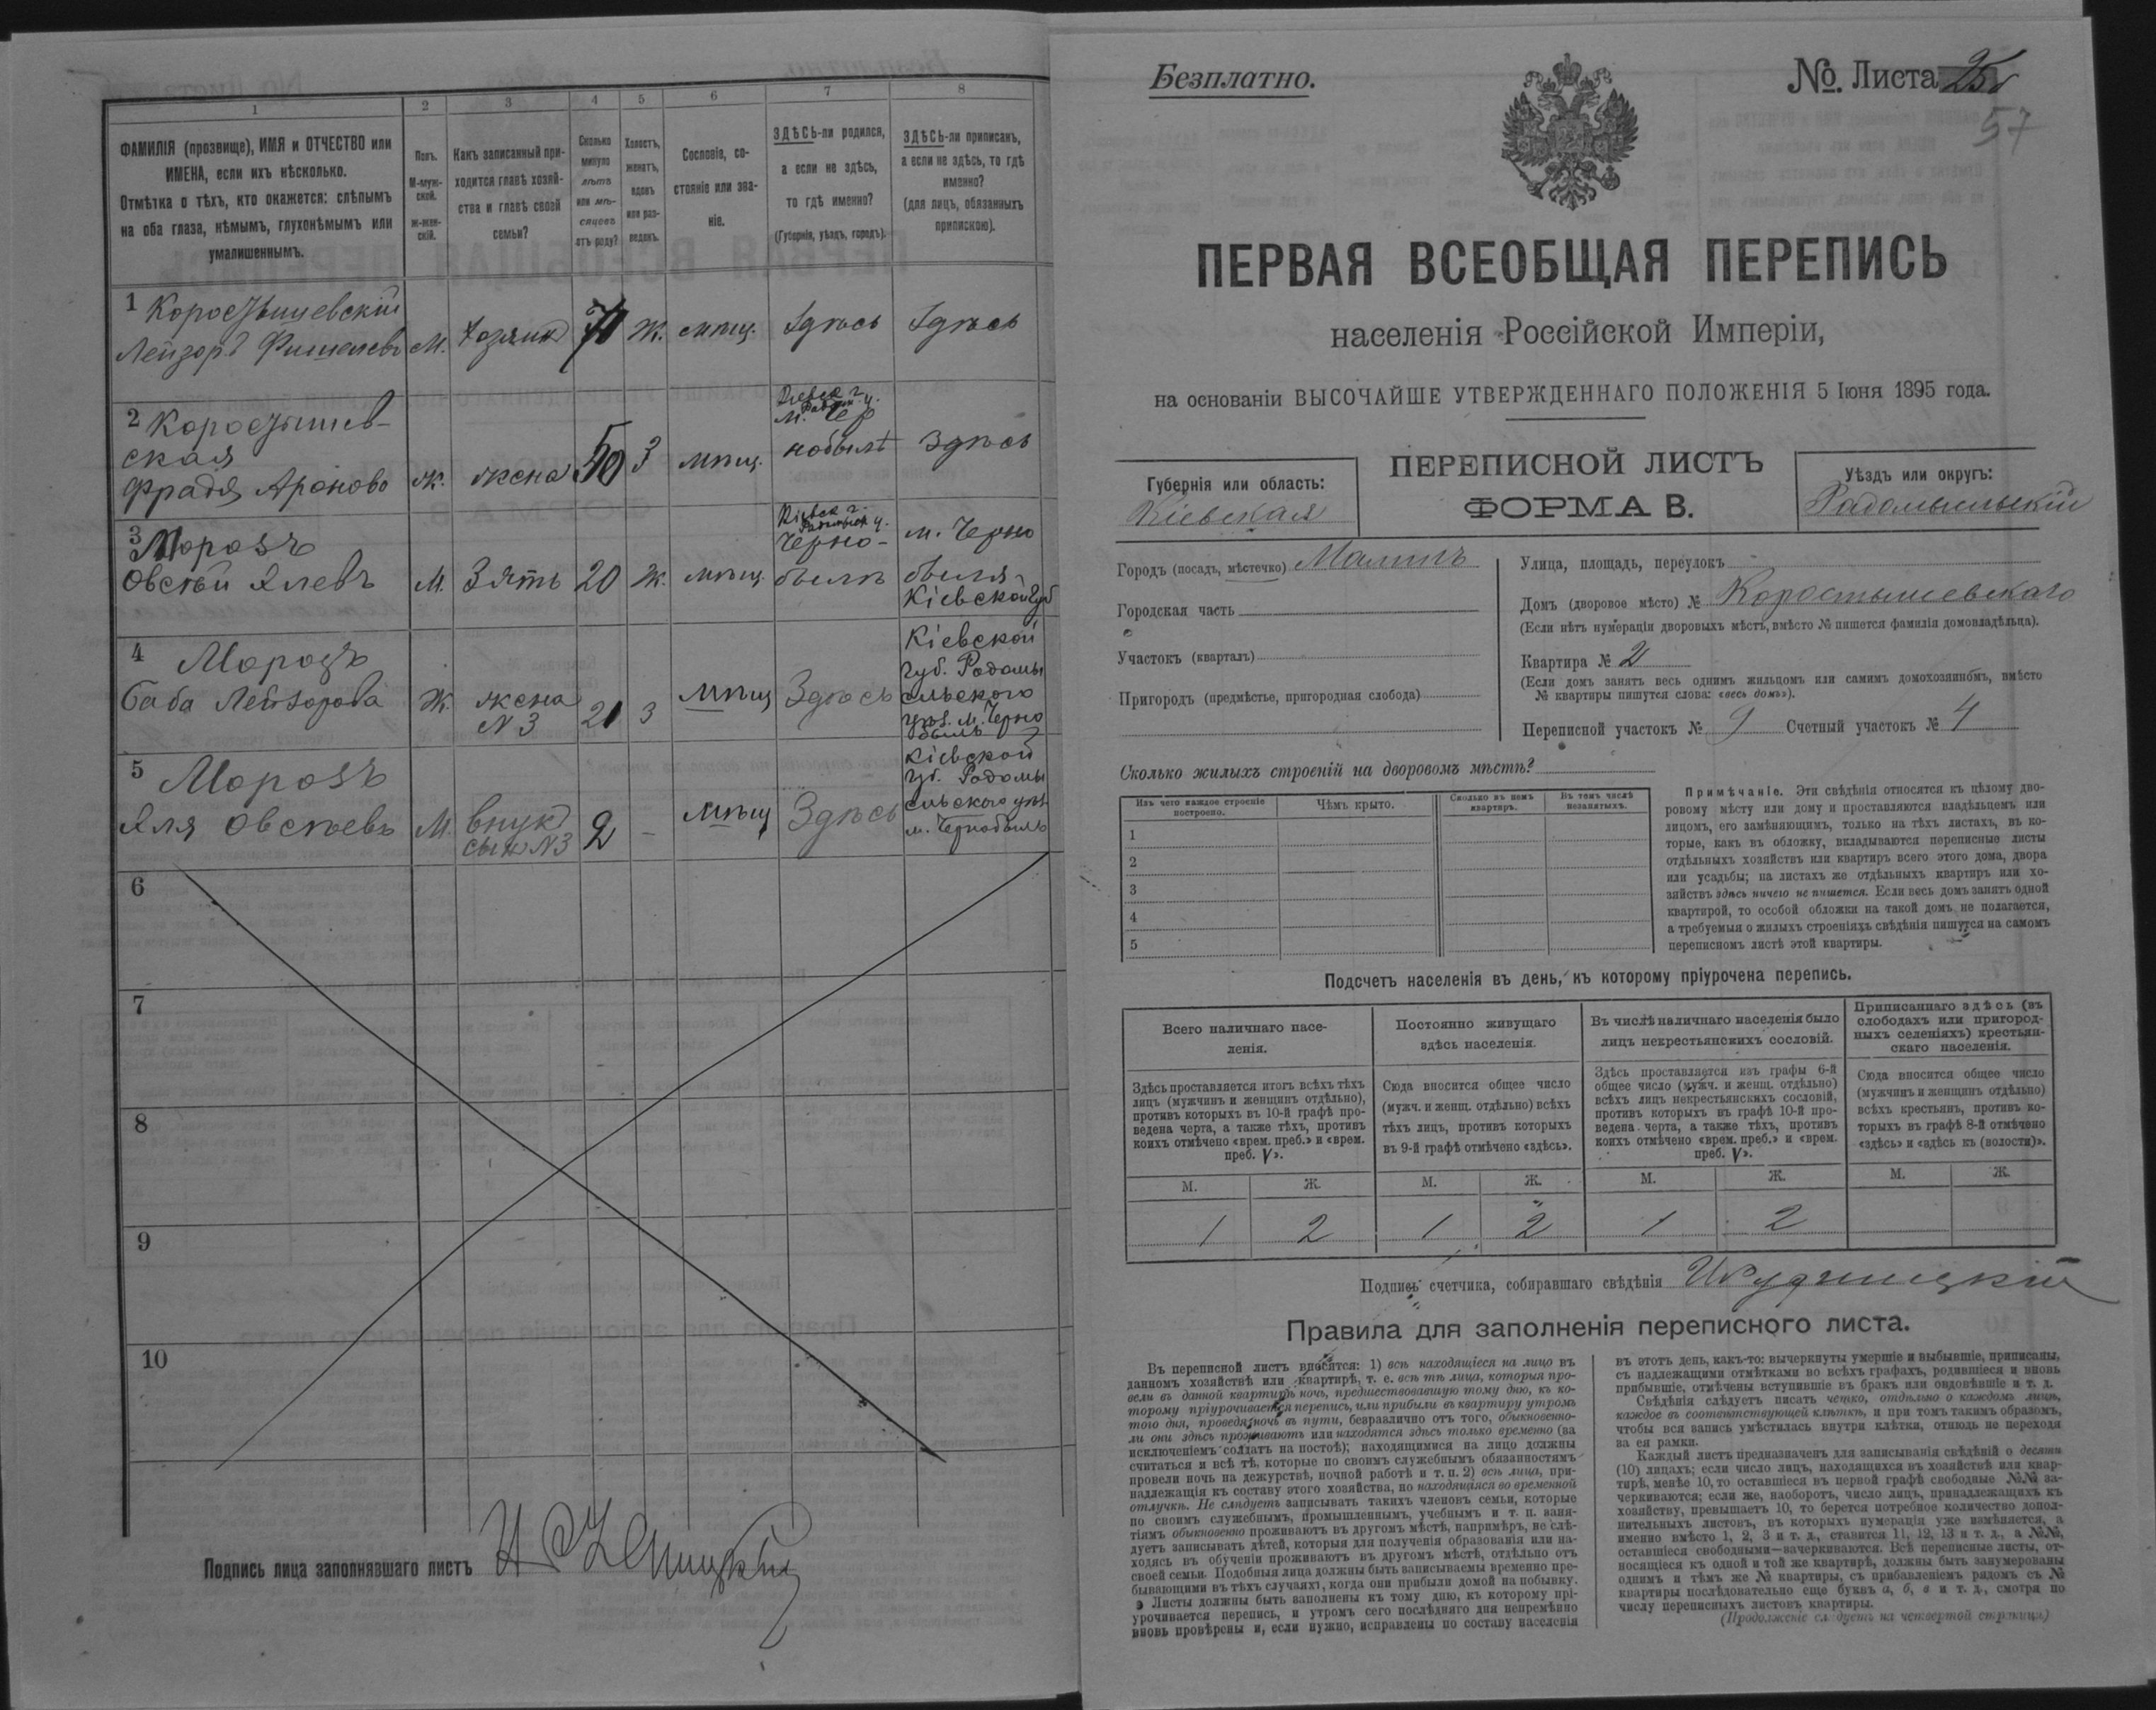 1
2
3
4
5
6
7
8
ФАМИЛІЯ (прозвище), ИМЯ и ОТЧЕСТВО или
ИМЕНА, если ихъ нѣсколько.
Отмѣтка о тѣхъ, кто окажется: слѣпымъ
на оба глаза, нѣмымъ, глухонѣмымъ или
умалишеннымъ.
Полъ.
М-муж-
ской.
Ж-жен-
скій.
Какъ записанный при-
ходится главѣ хозяй-
ства и главѣ своей
семьи?
Сколько
минуло
лѣтъ
или мѣ-
сяцевъ
отъ роду?
Холостъ,
женатъ,
вдовъ
или раз-
веденъ.
Сословіе, со-
стояніе или зва-
ніе.
ЗДѢСЬ-ли родился,
а если не здѣсь,
то гдѣ именно?
(Губернія, уѣздъ, городъ).
ЗДѢСЬ-ли приписанъ,
а если не здѣсь, то гдѣ
именно?
(для лицъ, обязанныхъ
припискою).
1 Коростышевскій
Лейзоръ Фишелевъ
М.
Хозяинъ
Ж.
мѣщ.
Здѣсь
Здѣсь
2 Коростышев-
ская
Фрадя Аронова
ж.
жена
50
З
мѣщ.
Кіевск г.
Радом у.
м. Чер
нобылѣ
Здѣсь
3 Морозъ
Овсѣй Элевъ
М.
Зять
20
Ж.
мѣщ.
Кіевск г.
Радомыск у.
Черно-
былѣ
м. Черно
быля
Кіевской Губ
4 Морозъ
Баба Лейзорова
Ж.
жена
N 3
21
З
мѣщ
Здѣсь
Кіевской
Губ. Радомы
сльского
уѣз. м. Черно
быль
5 Морозъ
Эля Овсѣевъ
М.
внукъ
сынъ N3
2
–
мѣщ
Здѣсь
Кіевской
Губ. Радомы
сльского уѣз
м. Чернобыль
6
7
8
9
10
Подпись лица заполнявшаго листъ
Безплатно.
№. Листа 25
57
ПЕРВАЯ ВСЕОБЩАЯ ПЕРЕПИСЬ
населенія Россійской Имперіи,
на основаніи ВЫСОЧАЙШЕ УТВЕРЖДЕННАГО ПОЛОЖЕНІЯ 5 Іюня 1895 года.
Губернія или область:
Кіевская
ПЕРЕПИСНОЙ ЛИСТЪ
ФОРМА В.
Уѣздъ или округъ:
Радомысльскій
Городъ (посадъ, мѣстечко) Малинъ
Городская часть
Участокъ (кварталъ)
Пригородъ (предмѣстье, пригородная слобода)
Улица, площадь, переулокъ
Домъ (дворовое мѣсто) № Коростышевскаго
(Если нѣтъ нумераціи дворовыхъ мѣстъ, вмѣсто № пишется фамилія домовладѣльца).
Квартира № 2
(Если домъ занятъ весь однимъ жильцомъ или самимъ домохозяиномъ, вмѣсто
№ квартиры пишутся слова: «весь домъ»).
Переписной участокъ № 9 Счетный участокъ № 4
Сколько жилыхъ строеній на дворовомъ мѣстѣ?
Изъ чего каждое строеніе
построено.
Чѣмъ крыто.
Сколько въ немъ
квартиръ.
Въ томъ числѣ
незанятыхъ.
1
2
3
4
5
Примѣчаніе. Эти свѣдѣнія относятся къ цѣлому дво-
ровому мѣсту или дому и проставляются владѣльцемъ или
лицомъ, его замѣняющимъ, только на тѣхъ листахъ, въ ко-
торые, какъ въ обложку, вкладываются переписные листы
отдѣльныхъ хозяйствъ или квартиръ всего этого дома, двора
или усадьбы; на листахъ же отдѣльныхъ квартиръ или хо-
зяйствъ здѣсь ничего не пишется. Если весь домъ занятъ одной
квартирой, то особой обложки на такой домъ не полагается,
а требуемыя о жилыхъ строеніяхъ свѣдѣнія пишутся на самомъ
переписномъ листѣ этой квартиры.
Подсчетъ населенія въ день, къ которому пріурочена перепись.
Всего наличнаго насе-
ленія.
Постоянно живущаго
здѣсь населенія.
Въ числѣ наличнаго населенія было
лицъ некрестьянскихъ сословій.
Приписаннаго здѣсь (въ
слободахъ или пригород-
ныхъ селеніяхъ) крестьян-
скаго населенія.
Здѣсь проставляется итогъ всѣхъ тѣхъ
лицъ (мужчинъ и женщинъ отдѣльно),
противъ которыхъ въ 10-й графѣ про-
ведена черта, а также тѣхъ, противъ
коихъ отмѣчено «врем. преб.» и «врем.
преб. V».
Сюда вносится общее число
(мужч. и женщ. отдѣльно) всѣхъ
тѣхъ лицъ, противъ которыхъ
въ 9-й графѣ отмѣчено «здѣсь».
Здѣсь проставляется изъ графы 6-й
общее число (мужч. и женщ. отдѣльно)
всѣхъ лицъ некрестьянскихъ сословій,
противъ которыхъ въ графѣ 10-й про-
ведена черта, а также тѣхъ, противъ
коихъ отмѣчено «врем. преб.» и «врем.
преб. V».
Сюда вносится общее число
(мужчинъ и женщинъ отдѣльно)
всѣхъ крестьянъ, противъ ко-
торыхъ въ графѣ 8-й отмѣчено
«здѣсь» и «здѣсь къ (волости)».
М. Ж. М. Ж. М. Ж. М. Ж.
1 2 1 2 1 2
Подпись счетчика, собиравшаго свѣдѣнія
Правила для заполненія переписного листа.
Въ переписной листъ вносятся: 1) всѣ находящіеся на лицо въ
данномъ хозяйствѣ или квартирѣ, т. е. всѣ тѣ лица, которыя про-
вели въ данной квартирѣ ночь, предшествовавшую тому дню, къ ко-
торому пріурочивается перепись, или прибыли въ квартиру утромъ
того дня, проведя ночь въ пути, безразлично отъ того, обыкновенно-
ли они здѣсь проживаютъ или находятся здѣсь только временно (за
исключеніемъ солдатъ на постоѣ); находящимися на лицо должны
считаться и всѣ тѣ, которые по своимъ служебнымъ обязанностямъ
провели ночь на дежурствѣ, ночной работѣ и т. п. 2) всѣ лица, при-
надлежащія къ составу этого хозяйства, но находящіяся во временной
отлучкѣ. Не слѣдуетъ записывать такихъ членовъ семьи, которые
по своимъ служебнымъ, промышленнымъ, учебнымъ и т. п. заня-
тіямъ обыкновенно проживаютъ въ другомъ мѣстѣ, напримѣръ, не слѣ-
дуетъ записывать дѣтей, которыя для полученія образованія или на-
ходясь въ обученіи проживаютъ въ другомъ мѣстѣ, отдѣльно отъ
своей семьи. Подобныя лица должны быть записываемы временно пре-
бывающими въ тѣхъ случаяхъ, когда они прибыли домой на побывку.
Листы должны быть заполнены къ тому дню, къ которому прі-
урочивается перепись, и утромъ сего послѣдняго дня непремѣнно
вновь провѣрены и, если нужно, исправлены по составу населенія
въ этотъ день, какъ-то: вычеркнуты умершіе и выбывшіе, приписаны,
съ надлежащими отмѣтками во всѣхъ графахъ, родившіеся и вновь
прибывшіе, отмѣчены вступившіе въ бракъ или овдовѣвшіе и т. д.
Свѣдѣнія слѣдуетъ писать четко, отдѣльно о каждомъ лицѣ,
каждое въ соотвѣтствующей клѣткѣ, и при томъ такимъ образомъ,
чтобы вся запись умѣстилась внутри клѣтки, отнюдь не переходя
за ея рамки.
Каждый листъ предназначенъ для записыванія свѣдѣній о десяти
(10) лицахъ; если число лицъ, находящихся въ хозяйствѣ или квар-
тирѣ, менѣе 10, то оставшіеся въ первой графѣ свободные №№ за-
черкиваются; если же, наоборотъ, число лицъ, принадлежащихъ къ
хозяйству, превышаетъ 10, то берется потребное количество допол-
нительныхъ листовъ, въ которыхъ нумерація уже измѣняется, а
именно вмѣсто 1, 2, 3 и т. д., ставится 11, 12, 13 и т. д., а №№,
оставшіеся свободными—зачеркиваются. Всѣ переписные листы, от-
носящіеся къ одной и той же квартирѣ, должны быть занумерованы
однимъ и тѣмъ же № квартиры, съ прибавленіемъ рядомъ съ №
квартиры послѣдовательно еще буквъ а, б, в и т. д., смотря по
числу переписныхъ листовъ квартиры.
(Продолженіе слѣдуетъ на четвертой страницѣ)